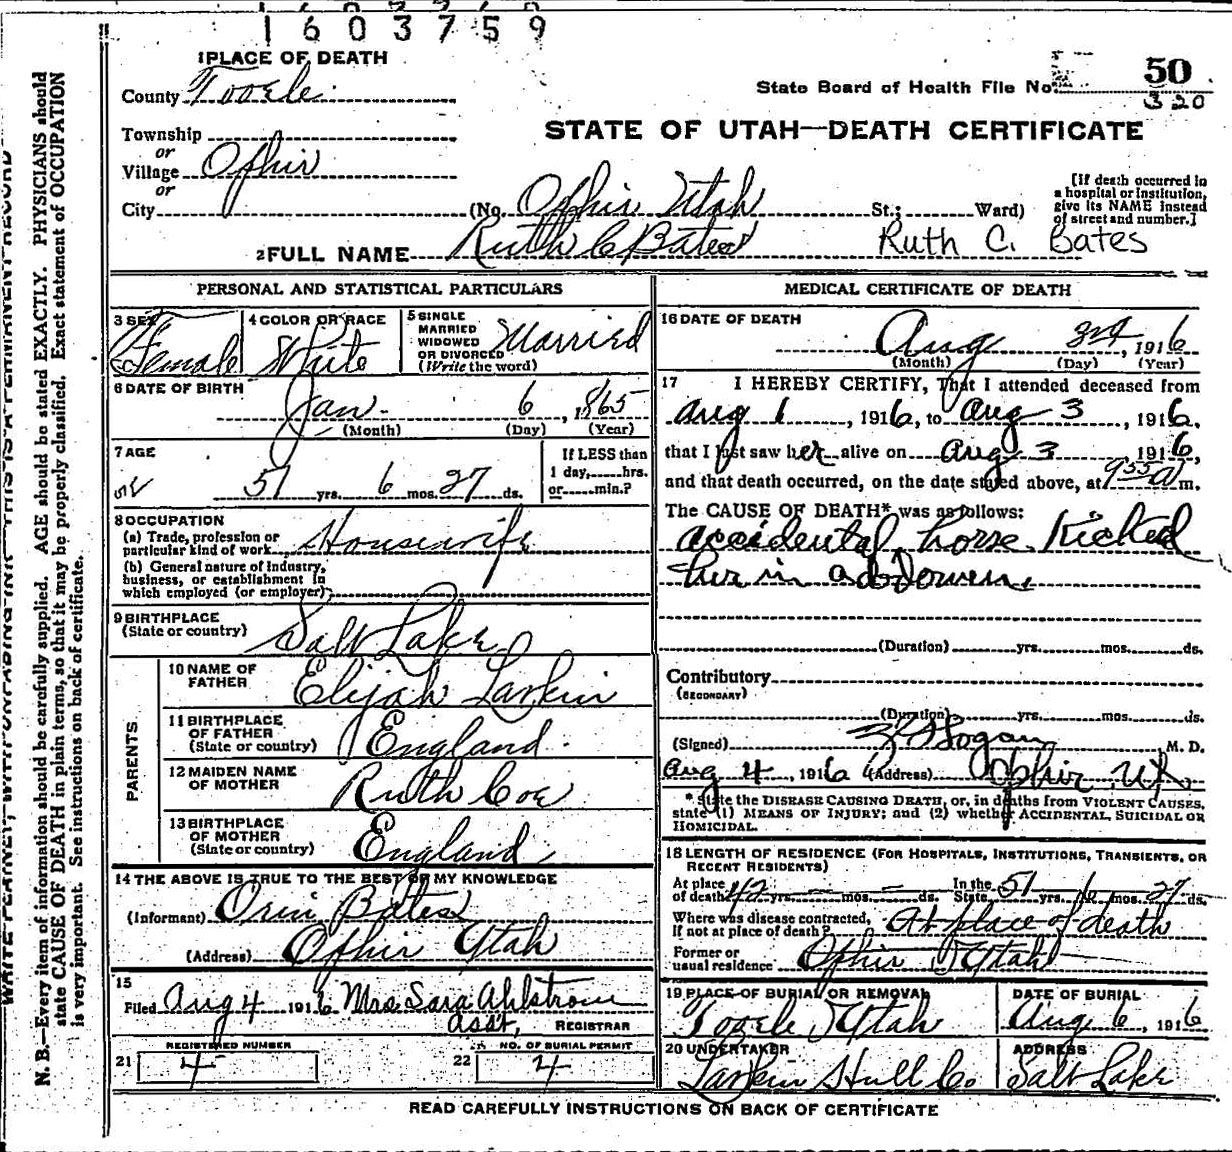 1603759
1 PLACE OF DEATH
County Tooele
State Board of Health File No. 50
320
Township
or
Village Ophir
or
City (No. Ophir Utah St.; Ward)
STATE OF UTAH—DEATH CERTIFICATE
[If death occurred in
a hospital or institution,
give its NAME instead
of street and number.]
2 FULL NAME Ruth C Bates Ruth C. Bates
PERSONAL AND STATISTICAL PARTICULARS
3 SEX Female
4 COLOR OR RACE White
5 SINGLE
MARRIED
WIDOWED
OR DIVORCED
(Write the word) Married
6 DATE OF BIRTH
Jan. 6, 1865
(Month) (Day) (Year)
7 AGE
51 yrs. 6 mos. 27 ds.
If LESS than
1 day, hrs.
or min.?
8 OCCUPATION
(a) Trade, profession or
particular kind of work Housewife
(b) General nature of industry,
business, or establishment in
which employed (or employer)
9 BIRTHPLACE
(State or country) Salt Lake
PARENTS
10 NAME OF
FATHER Elijah Larkin
11 BIRTHPLACE
OF FATHER
(State or country) England
12 MAIDEN NAME
OF MOTHER Ruth Coe
13 BIRTHPLACE
OF MOTHER
(State or country) England
14 THE ABOVE IS TRUE TO THE BEST OF MY KNOWLEDGE
(Informant) Orin Bates
(Address) Ophir Utah
15
Filed Aug 4 1916 Mrs Sara Ahlstrom
asst, REGISTRAR
REGISTERED NUMBER
21 4
NO. OF BURIAL PERMIT
22 4
MEDICAL CERTIFICATE OF DEATH
16 DATE OF DEATH
Aug 3rd, 1916
(Month) (Day) (Year)
17 I HEREBY CERTIFY, That I attended deceased from
Aug 1, 1916, to Aug 3, 1916,
that I last saw her alive on Aug 3, 1916,
and that death occurred, on the date stated above, at 9 55 a m.
The CAUSE OF DEATH* was as follows:
accidental horse Kicked
her in abdomen,
(Duration) yrs. mos. ds.
Contributory
(SECONDARY)
(Duration) yrs. mos. ds.
(Signed) Hogan M. D.
Aug 4, 1916 (Address) Ophir Ut
* State the DISEASE CAUSING DEATH, or, in deaths from VIOLENT CAUSES,
state (1) MEANS OF INJURY; and (2) whether ACCIDENTAL, SUICIDAL OR
HOMICIDAL.
18 LENGTH OF RESIDENCE (FOR HOSPITALS, INSTITUTIONS, TRANSIENTS, OR
RECENT RESIDENTS)
At place
of death 42 yrs. mos. ds. In the
State 51 yrs. 6 mos. 27 ds.
Where was disease contracted,
If not at place of death? At place of death
Former or
usual residence Ophir Utah
19 PLACE OF BURIAL OR REMOVAL
Tooele Utah
DATE OF BURIAL
Aug 6, 1916
20 UNDERTAKER
Larkin Hull Co.
ADDRESS
Salt Lake
READ CAREFULLY INSTRUCTIONS ON BACK OF CERTIFICATE
WRITE PLAINLY, WITH UNFADING INK—THIS IS A PERMANENT RECORD
N. B.—Every item of information should be carefully supplied. AGE should be stated EXACTLY. PHYSICIANS should
state CAUSE OF DEATH in plain terms, so that it may be properly classified. Exact statement of OCCUPATION
is very important. See instructions on back of certificate.